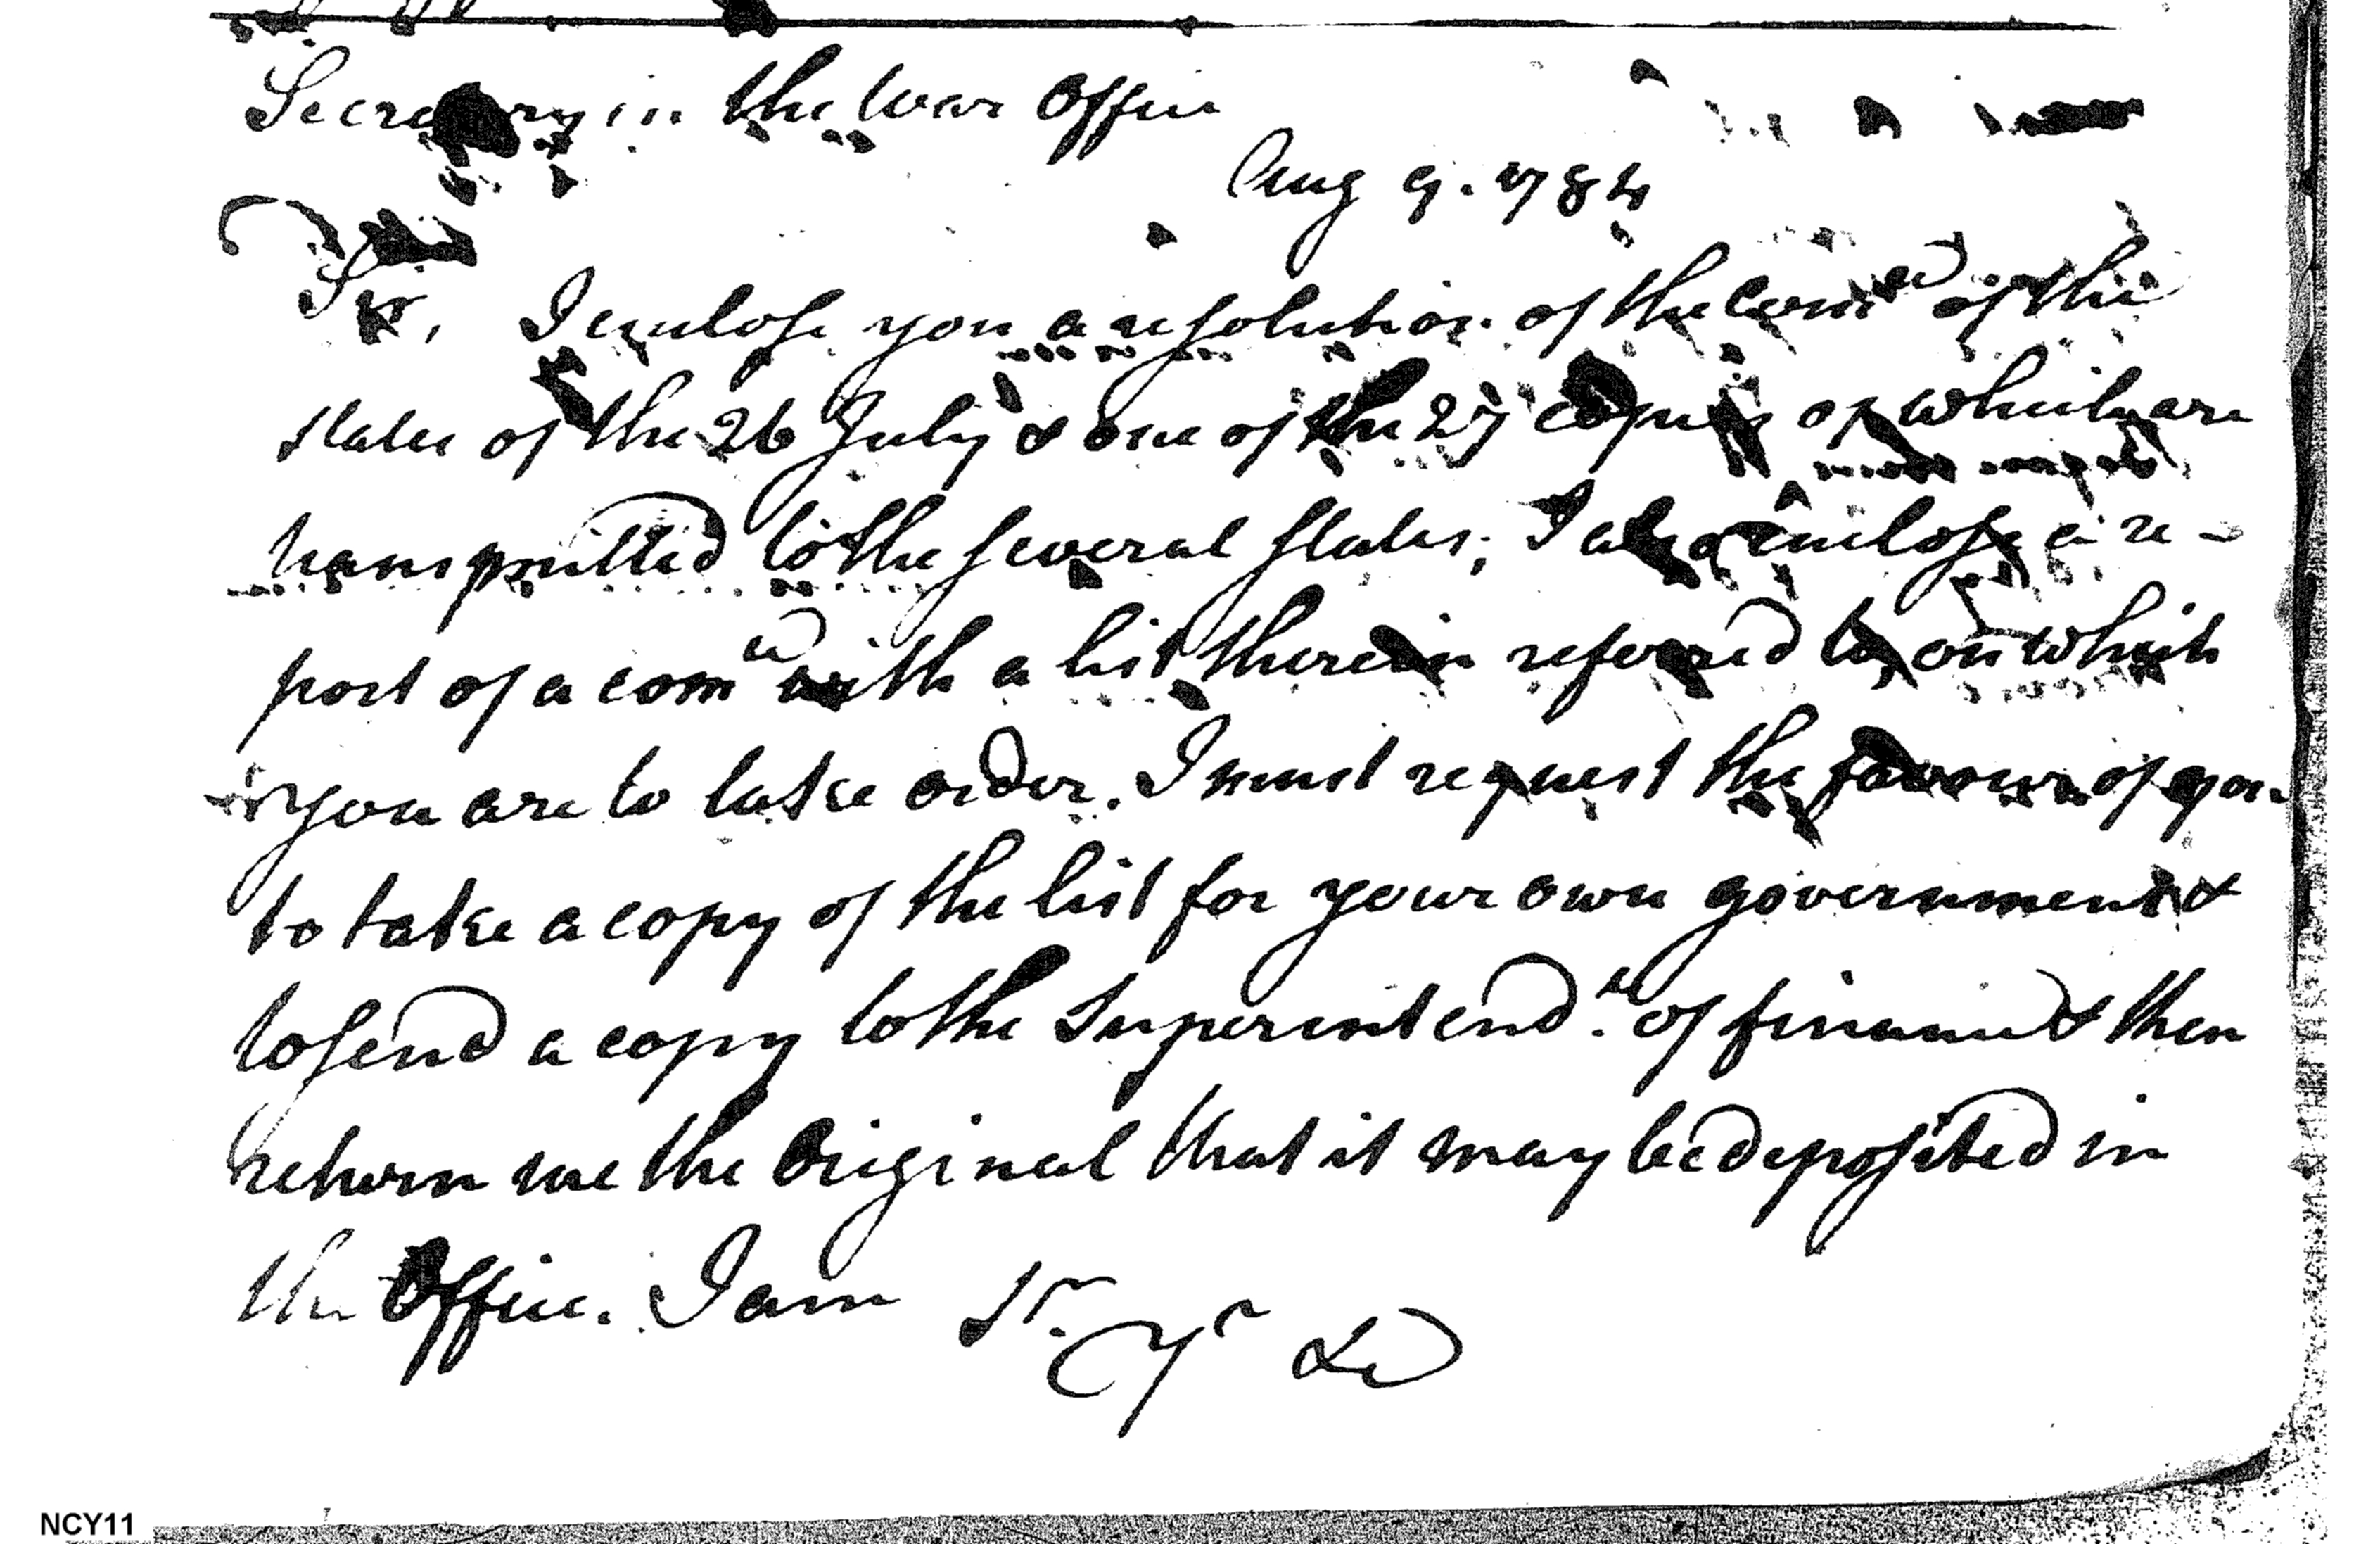 Secretary in the War Office
Aug 9. 1784
Sir, I enclose you a resolution of the comee of the
states of the 26 July & one of the 27 copies of which are
transmitted to the several states; I also enclose a re-
port of a comee with a list therein referred to, on which
you are to take order. I must request the favour of you
to take a copy of the list for your own government &
to send a copy to the Superintendt. of finance & then
return me the Original that it may be deposited in
the Office. I am Sr. Yr &c
NCY11